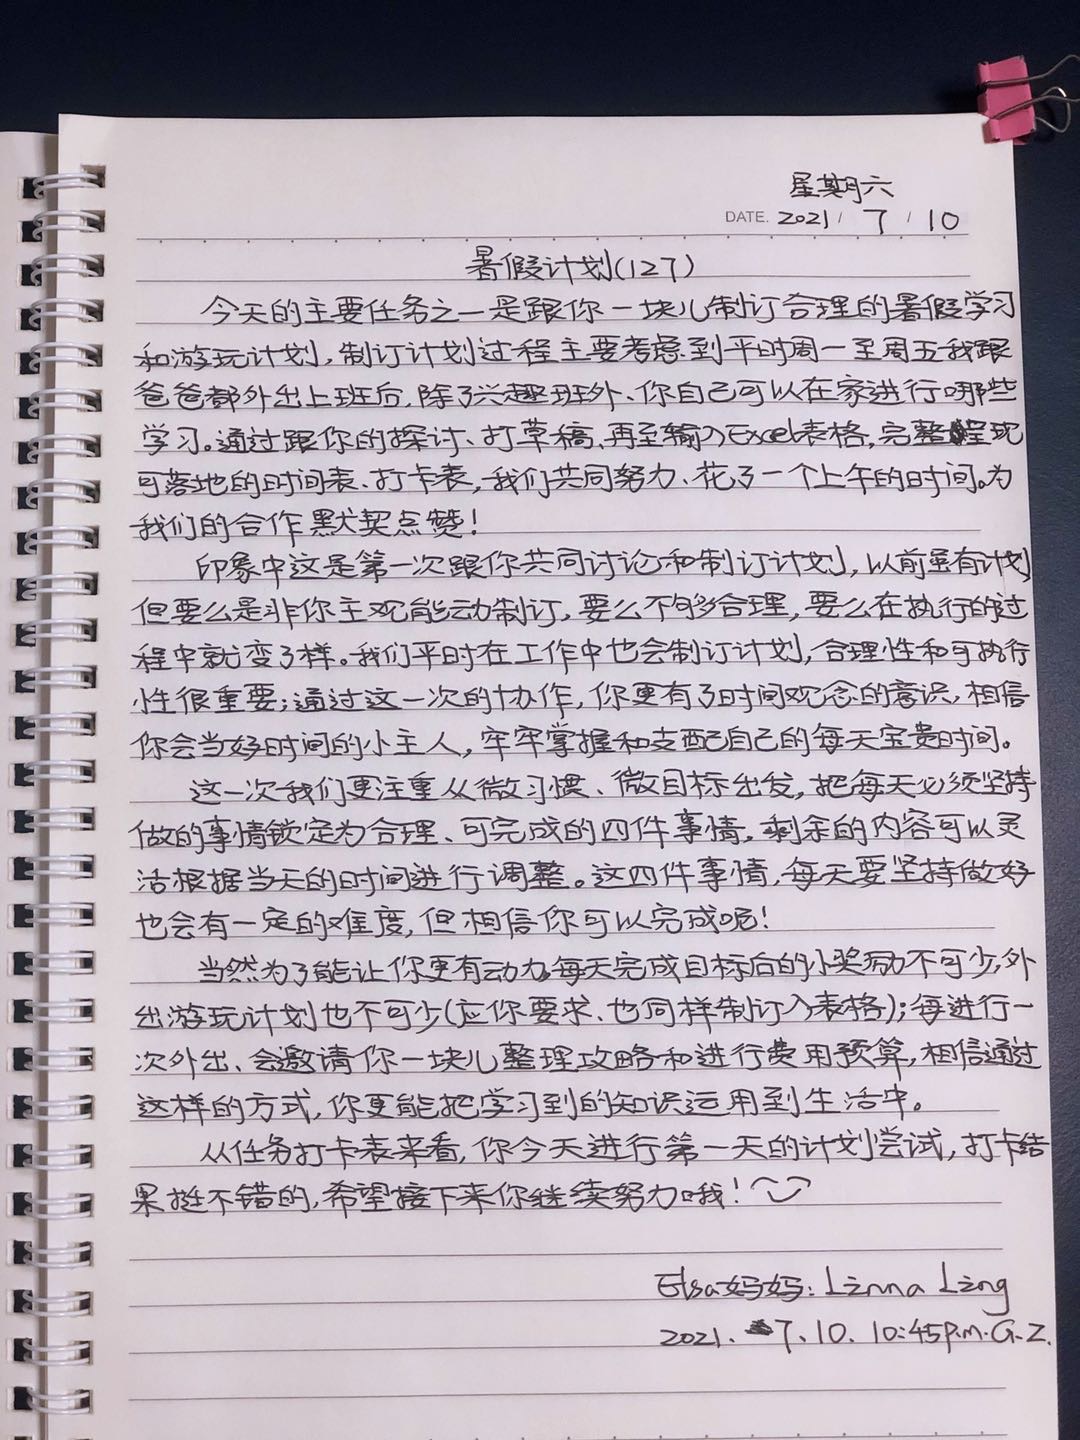 星期六
DATE. 2021 / 7 / 10
暑假计划(127)
今天的主要任务之一是跟你一块儿制订合理的暑假学习
和游玩计划,制订计划过程主要考虑到平时周一至周五我跟
爸爸都外出上班后,除了兴趣班外、你自己可以在家进行哪些
学习。通过跟你的探讨、打草稿、再至输入Excel表格,完整呈现
可落地的时间表、打卡表,我们共同努力、花了一个上午的时间。为
我们的合作默契点赞!
印象中这是第一次跟你共同讨论和制订计划,以前虽有计划
但要么是非你主观能动制订,要么不够合理,要么在执行的过
程中就变了样。我们平时在工作中也会制订计划,合理性和可执行
性很重要;通过这一次的协作,你更有了时间观念的意识,相信
你会当好时间的小主人,牢牢掌握和支配自己的每天宝贵时间。
这一次我们更注重从微习惯、微目标出发,把每天必须坚持
做的事情锁定为合理、可完成的四件事情,剩余的内容可以灵
活根据当天的时间进行调整。这四件事情,每天要坚持做好
也会有一定的难度,但相信你可以完成呢!
当然为了能让你更有动力,每天完成目标后的小奖励不可少,外
出游玩计划也不可少(应你要求、也同样制订入表格);每进行一
次外出、会邀请你一块儿整理攻略和进行费用预算,相信通过
这样的方式,你更能把学习到的知识运用到生活中。
从任务打卡表来看,你今天进行第一天的计划尝试,打卡结
果挺不错的,希望接下来你继续努力哦!
Elsa妈妈: Linna Ling
2021. 7.10. 10:45p.m. G.Z.